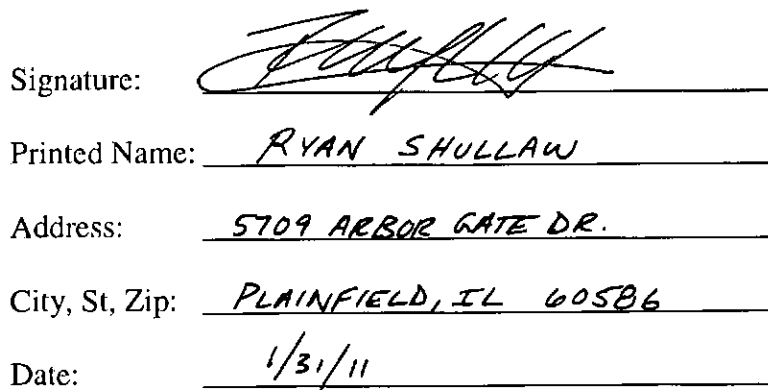 Signature:
Printed Name: RYAN SHULLAW
Address: 5709 ARBOR GATE DR.
City, St, Zip: PLAINFIELD, IL 60586
Date: 1/31/11